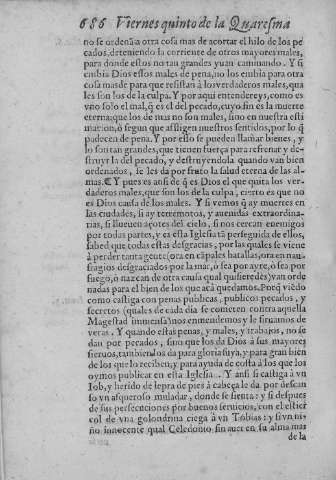 686 Viernes quinto de la Quaresma
no se ordenã a otra cosa mas de acortar el hilo de los pe
cados, deteniendo la corriente de otros mayores males,
para donde estos no tan grandes yuan caminando. Y si
embia Dios essos males de pena, no los embia para otra
cosa mas de para que resistan â los verdaderos males, que
les son los de la culpa. Y por aqui entendereys, como es
vno solo el mal, q̃ es el del pecado, cuyo fin es la muerte
eterna: que los de mas no son males, sino en nuestra esti
macion, ò segun que affligen nuestros sentidos, por lo q̃
padecen de pena. Y por esso se pueden llamar bienes, y
lo son tan grandes, que tienen fuerça para refrenar y de-
struyr la del pecado, y destruyendola quando van bien
ordenados, le les da por fruto la salud eterna de las al-
mas. Y pues es ansi de q̃ es Dios el que quita los ver-
daderos males, que son los de la culpa, cierto es que no
es Dios causa de los males. Y si vemos q̃ ay muertes en
las ciudades, si ay terremotos, y auenidas extraordina-
rias, si llueuen açotes del cielo, si nos cercan enemigos
por todas partes, y si esta Iglesia està perseguida de ellos,
sabed que todas estas desgracias, por las quales se viene
à perder tanta gente (ora en cãpales batallas, ora en nau-
fragios desgraciados por la mar, ò sea por ayre, ò sea por
fuego, ò nazcan de otra causa qual quisieredes) van orde
nadas para el bien de los que acà quedamos. Porq̃ viẽdo
como castiga con penas publicas, publicos pecados, y
secretos (quales de cada dia se cometen contra aquella
Magestad immensa) nos enmendemos y le siruamos de
veras. Y quando estas penas, y males, y trabajos, no se
dan por pecados, sino que los da Dios à sus mayores
sieruos, tambien los da para gloria suya, y para gran bien
de los que lo reciben, y para ayuda de costa à los que los
oymos publicar en esta Iglesia. Y ansi si castiga à vn
Iob, y herido de lepra de pies à cabeça le da por descan
so vn asqueroso muladar, donde se sienta: y si despues
de sus persecuciones por buenos seruicios, con el estier
col de vna golondrina ciega à vn Tobias: y si vn ni-
ño innocente qual Celedonio sin auer en su alma mas
de la